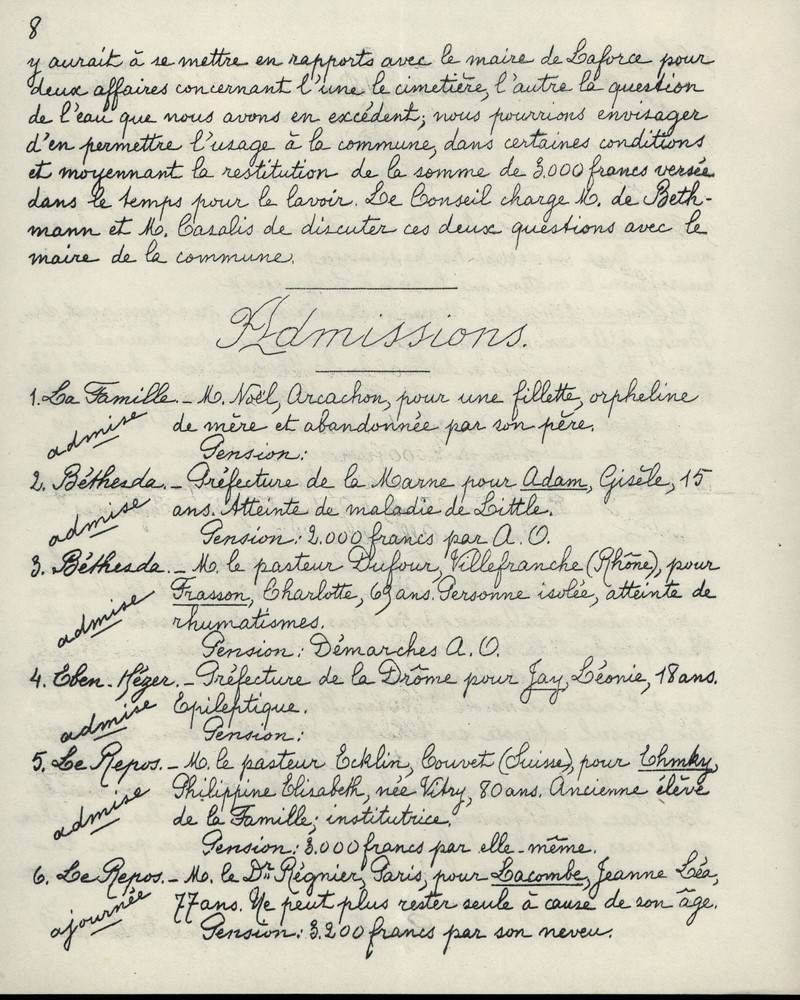 8
y aurait à se mettre en rapports avec le maire de Laforce pour
deux affaires concernant l'une le cimetière, l'autre la question
de l'eau que nous avons en excédent; nous pourrions envisager
d'en permettre l'usage à la commune, dans certaines conditions
et moyennant la restitution de la somme de 3.000 francs versée
dans le temps pour le lavoir. Le Conseil charge M. de Beth-
mann et M. Casalis de discuter ces deux questions avec le
maire de la commune.
Admissions.
1. La Famille. _ M. Noël, Arcachon, pour une fillette, orpheline
admise
de mère et abandonnée par son père.
Pension:
2. Béthesda. _ Préfecture de la Marne pour Adam, Gisèle, 15
admise
ans. Atteinte de maladie de Little.
Pension: 2.000 francs par A. O.
3. Béthesda. _ M. le pasteur Dufour, Villefranche (Rhône), pour
admise
Frasson, Charlotte, 69 ans. Personne isolée, atteinte de
rhumatismes.
Pension: Démarches A. O.
4. Eben-Hézer. _ Préfecture de la Drôme pour Jay, Léonie, 18 ans.
admise
Epileptique.
Pension:
5. Le Repos. _ M. le pasteur Ecklin, Couvet (Suisse), pour
admise
Philippine Elisabeth, née Vitry, 80 ans. Ancienne élève
de la Famille; institutrice.
Pension: 3.000 francs par elle-même.
6. Le Repos. _ M. le Dr. Régnier, Paris, pour Lacombe, Jeanne Léa,
ajournée
77 ans. Ne peut plus rester seule à cause de son âge.
Pension: 3.200 francs par son neveu.